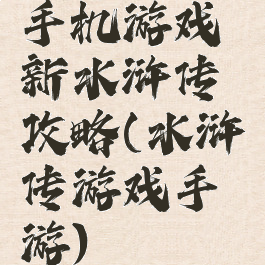 手机游戏
新水浒传
攻略(水浒
传游戏手
游)